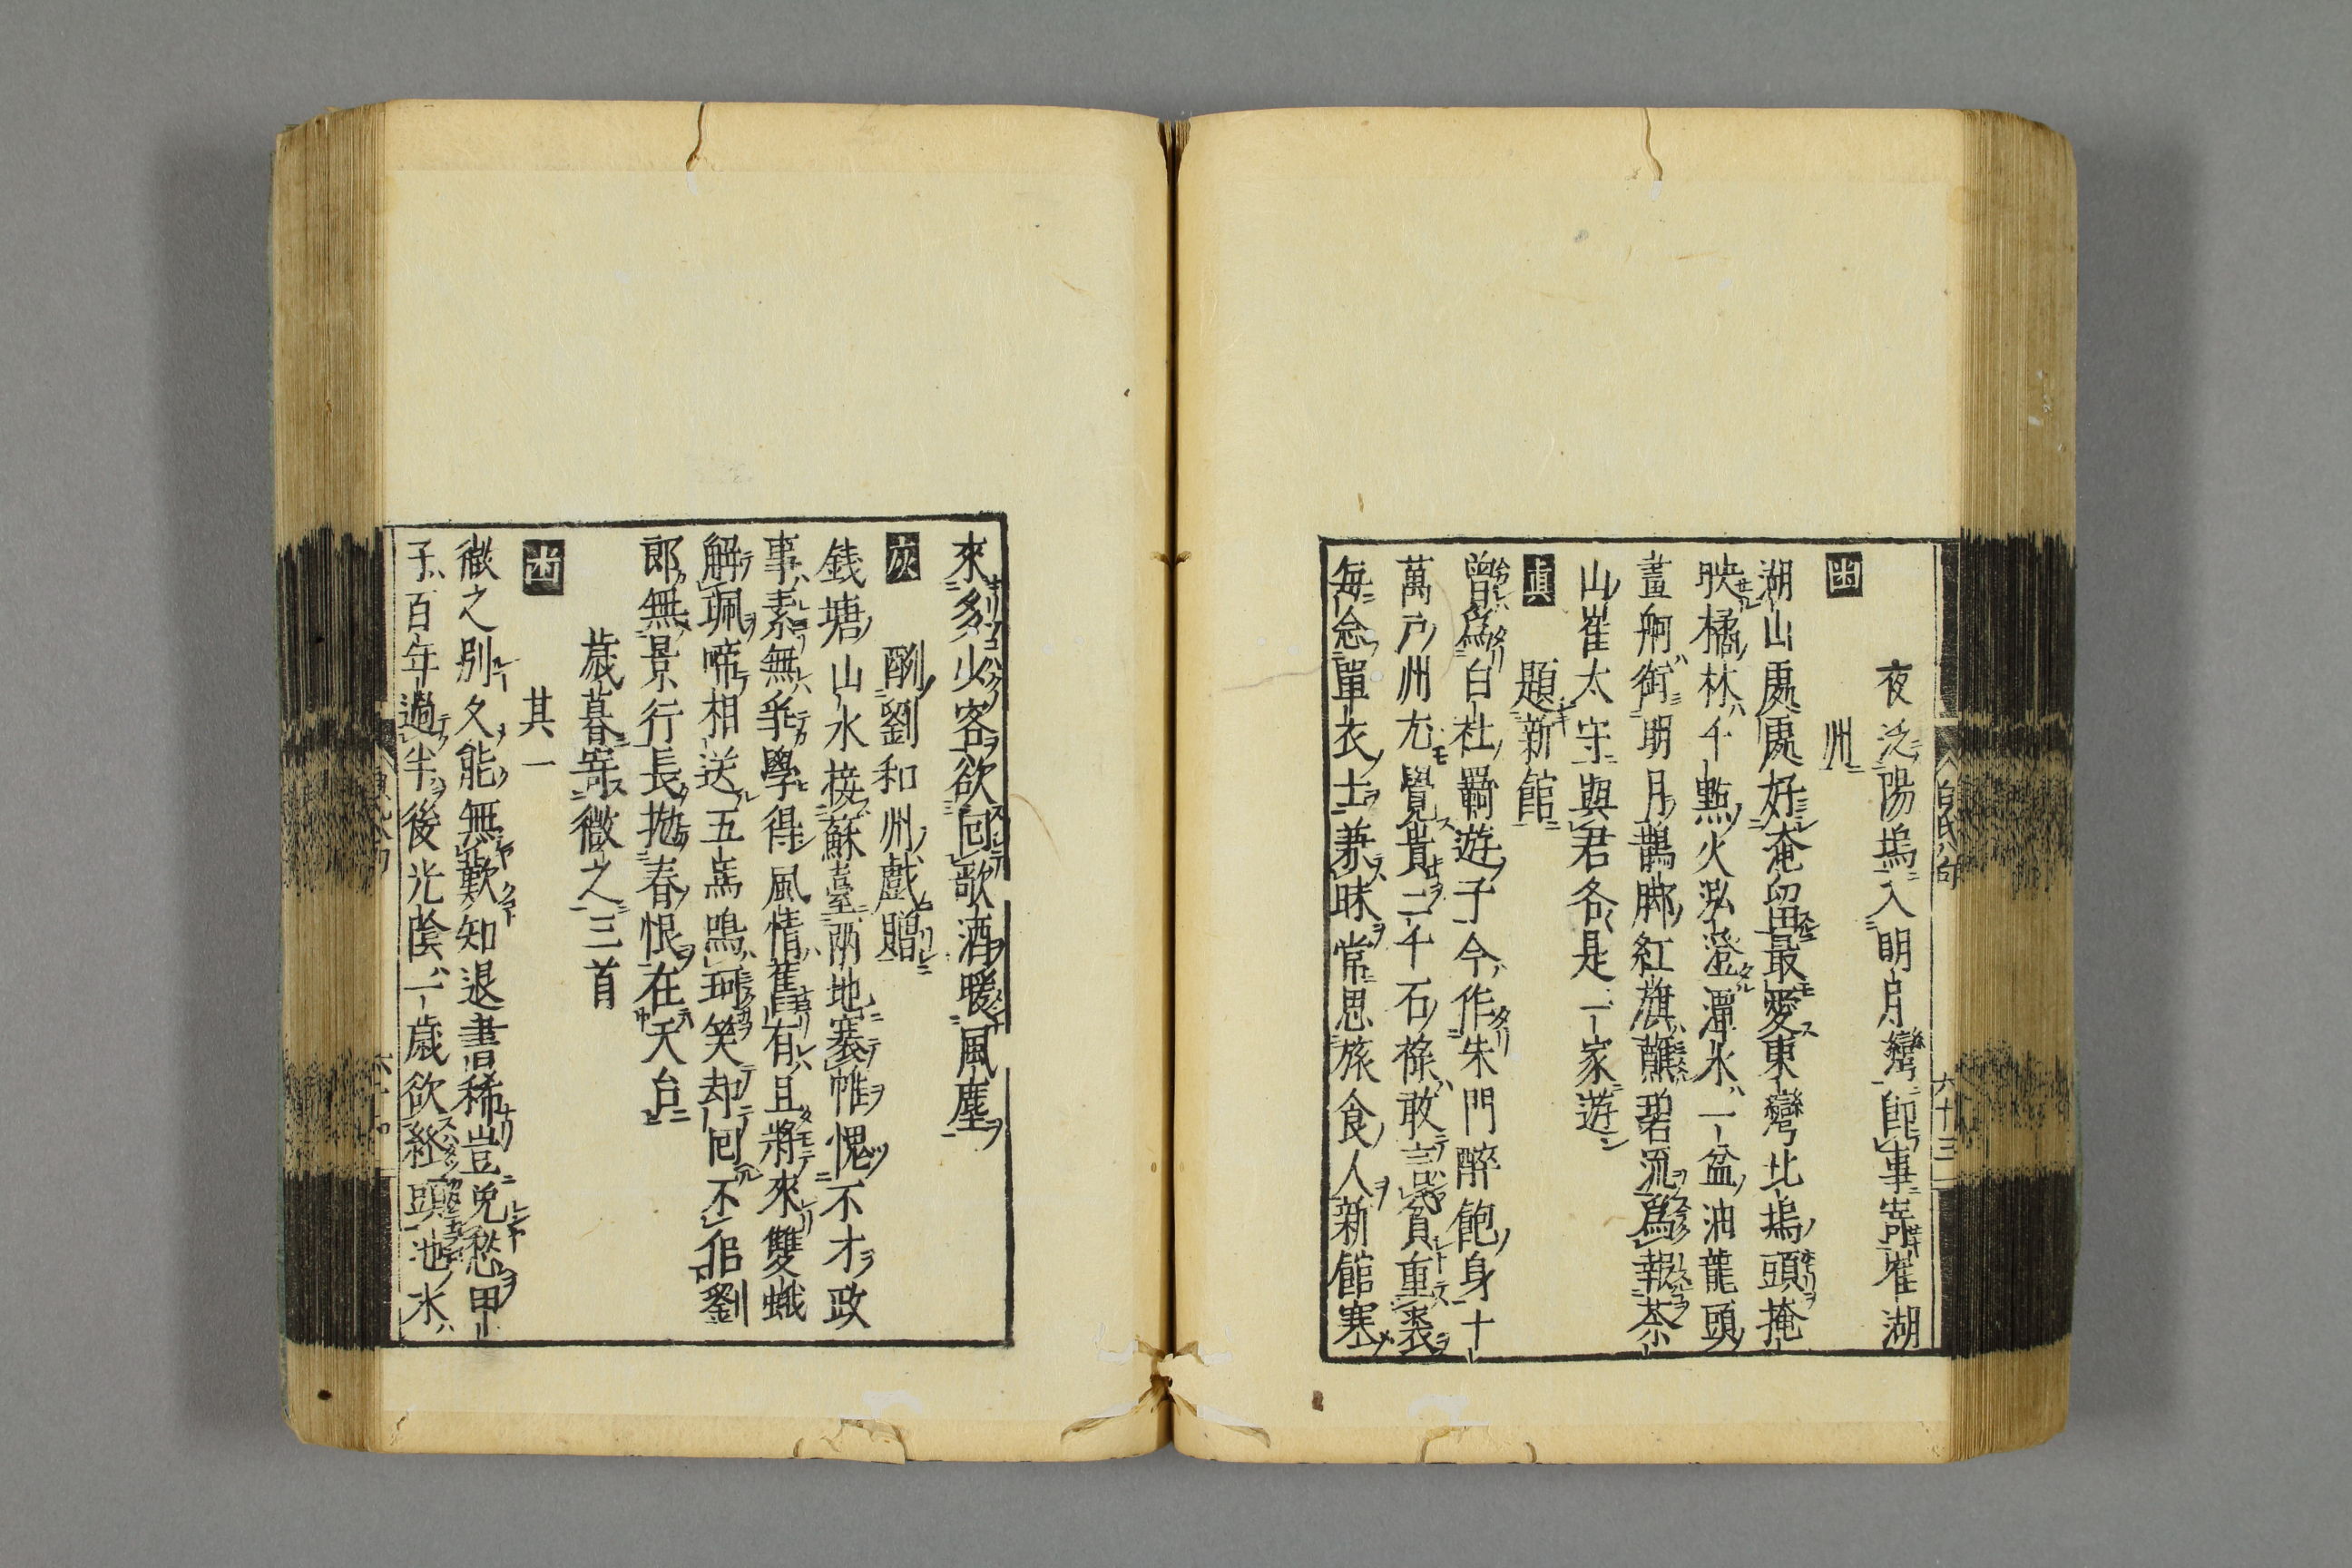 夜泛陽塢入明月灣即事寄崔湖
州
湖山處處好淹留最愛東灣北塢頭掩
映橘林千點火泓澄潭水一盆油龍頭
畫舸銜明月鵲脚紅旗蘸碧流爲報茶
山崔太守與君各是一家遊
眞
題新館
曾爲白社羇遊子今作朱門醉飽身十
萬戶州尤覺貴二千石祿敢言貧重裘
每念單衣士兼味常思旅食人新館寒
白氏八句
六十三
來多少客欲回歌酒暖風塵
灰
酬劉和州戲贈
錢塘山水接蘇臺兩地褰帷愧不才政
事素無爭學得風情舊有且將來雙蛾
解珮啼相送五馬鳴珂笑却回不似劉
郎無景行長抛春恨在天台
歲暮寄微之三首
其一
微之別久能無歎知退書稀豈免愁甲
子百年過半後光陰一歲欲終頭池水